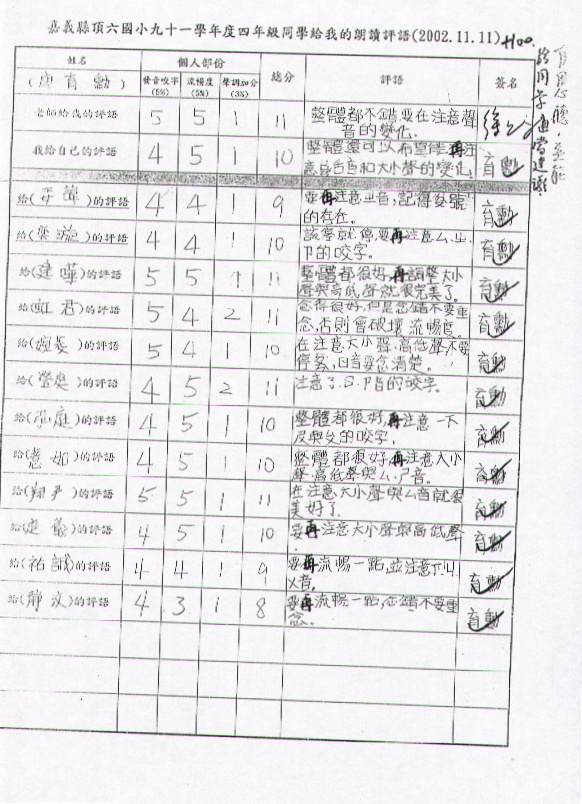 嘉義縣頂六國小九十一學年度四年級同學給我的朗讀評語(2002.11.11)
姓名 個人部份 總分 評語 簽名
(詹育勳) 發音咬字(5%) 流暢度(5%) 聲調加分(3%)
老師給我的評語 5 5 1 11 整體都不錯,要在注意聲
音的變化.
我給自己的評語 4 5 1 10 整體還可以,希望能再注
意 音和大小聲的變化. 育勳
給( )的評語 4 4 1 9 要再注意出音,記得 號
的存在. 育勳
給( )的評語 4 4 1 10 該停就停,要再注意ㄙ.ㄓ.
ㄗ的咬字. 育勳
給(建嘩)的評語 5 5 1 11 整體都很好,再調整大小
聲與高低聲就很完美了. 育勳
給(虹君)的評語 5 4 2 11 念得很好,但是念錯不要重
念,否則會破壞流暢度. 育勳
給(婉菱)的評語 5 4 1 10 在注意大小聲.高低聲不要
停 ,ㄖ音要念清楚. 育勳
給( 庭)的評語 4 5 2 11 注意 的咬字. 育勳
給(泓庭)的評語 4 5 1 10 整體都很好,再注意一下
與 的咬字. 育勳
給(慧如)的評語 4 5 1 10 整體都很好,再注意大小
聲.高低聲與ㄙ.ㄕ音. 育勳
給(翔尹)的評語 5 5 1 11 在注意大小聲與ㄙ音就很
美好了. 育勳
給(建儀)的評語 4 5 1 10 要再注意大小聲與高低聲
. 育勳
給(祐誠)的評語 4 4 1 9 要再流暢一點,並注意
音. 育勳
給(靜汶)的評語 4 3 1 8 要再流暢一點,念錯不要重
念. 育勳
給同學適當建議